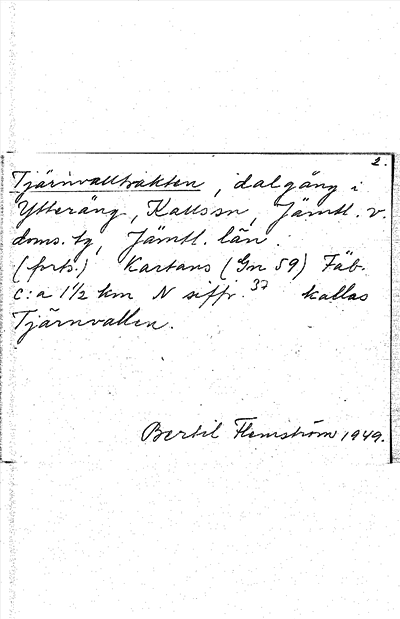 2.
Tjärnvalltrakten, dalgång i
Ytteräng, Kallssn, Jämtl. v.
doms. tg, Jämtl. län.
(forts.) Kartans (Gn 59) Fäb.
c:a 1 1/2 km N siffr. 37 kallas
Tjärnvallen.
Bertil Flemström 1949.